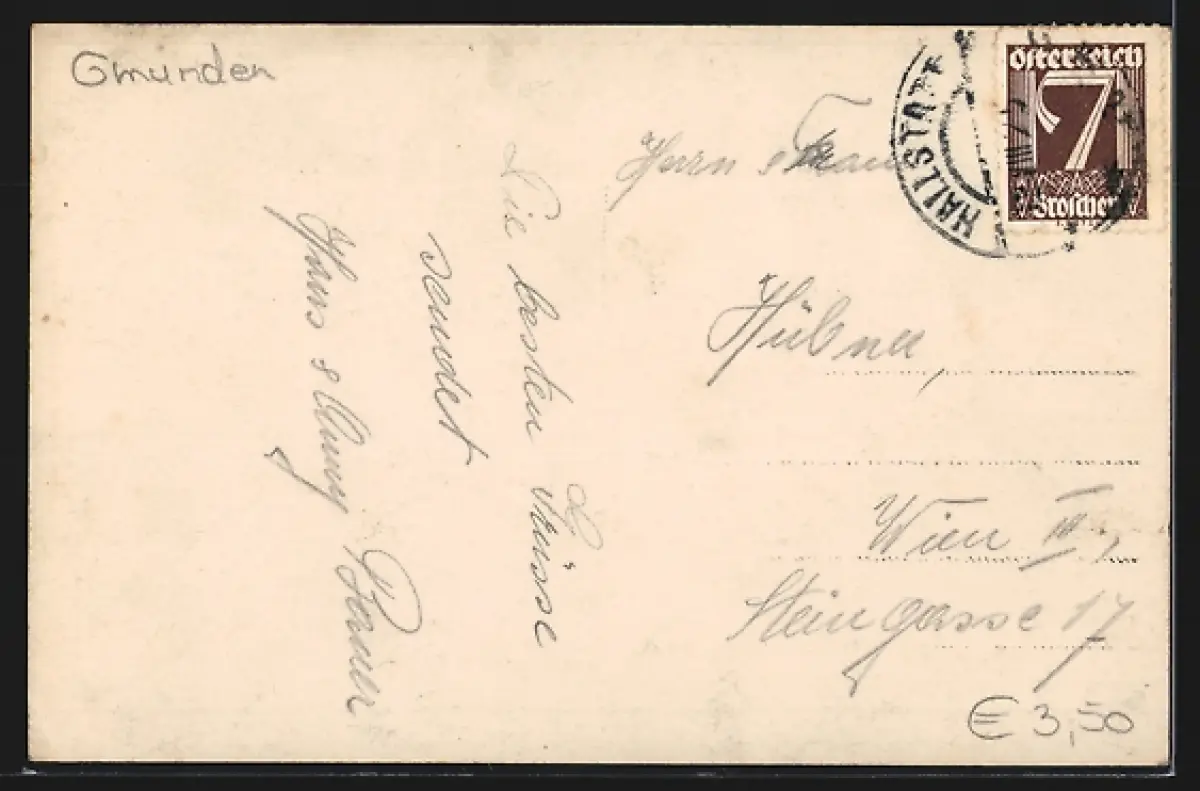 Gmunden
Die besten Grüsse
sendet
Hans &
Herrn
Hübner,
Wien III,
Steingasse 17
€ 3,50
HALLSTATT
Österreich
7
Groschen